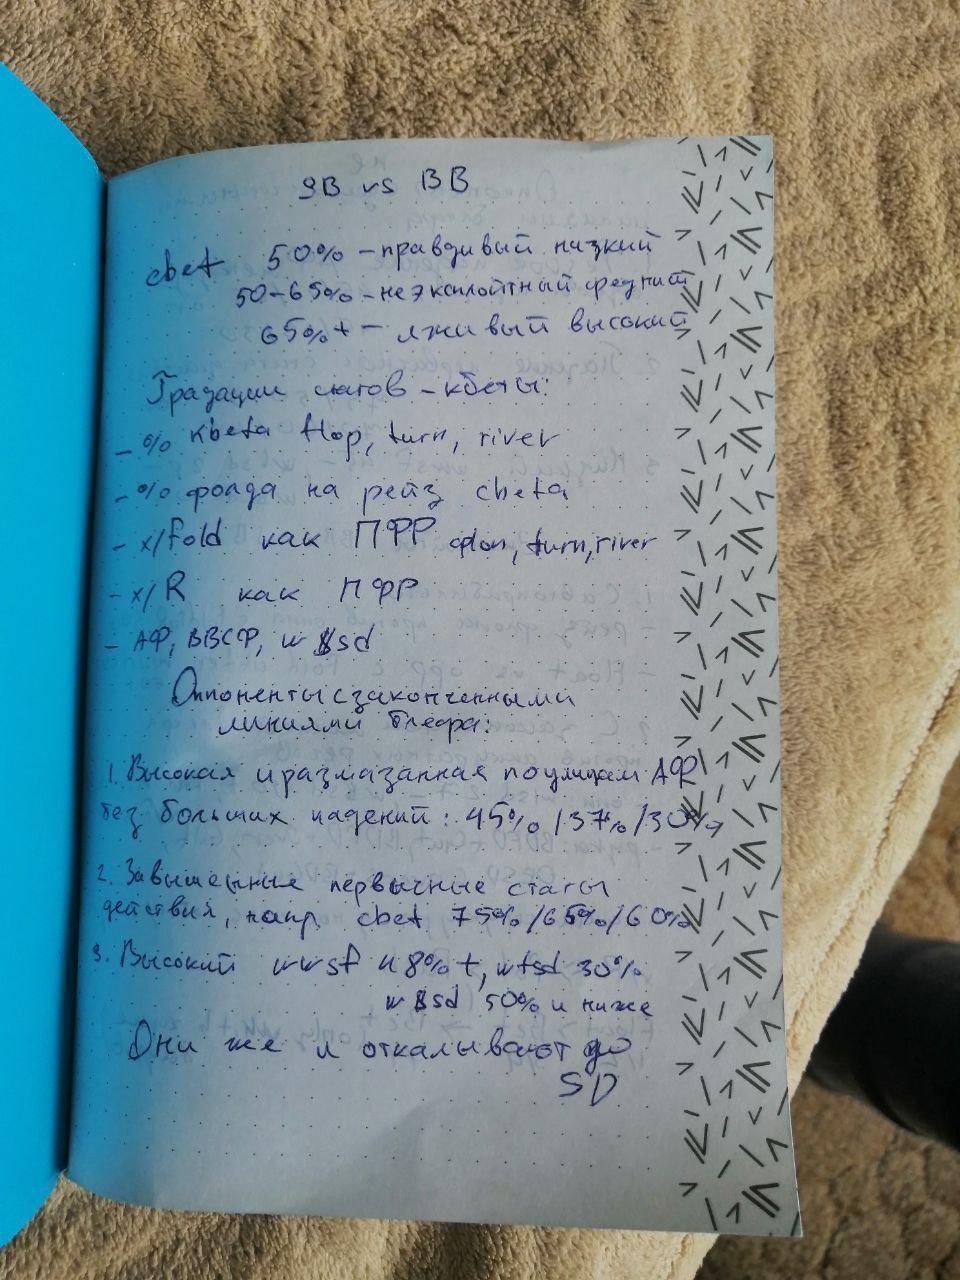 SB vs BB
cbet 50% - правдивый низкий
50-65% - неэксплойтный средний
65%+ - лживый высокий
Градации статов - кбеты:
- % кbeta flop, turn, river
- % фолда на рейз cbeta
- x/fold как ПФР флоп, turn, river
- x/R как ПФР
- АФ, ВВСФ, w$sd
Оппоненты с законченными
линиями блефа:
1. Высокая и размазанная по улицам АФ
без больших падений: 45% / 37% / 30%
2. Завышенные первичные статы
действия, напр. cbet 75%/65%/60%
3. Высокий wwsf 48%+, wtsd 30%
w$sd 50% и ниже
Они же и откалывают до
SD